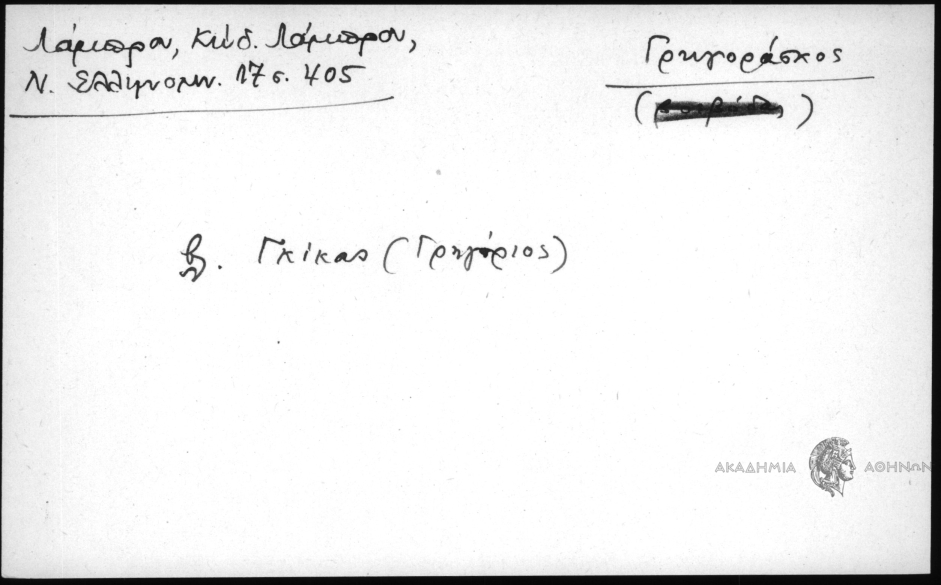 Λάμπρου, Κώδ. Λάμπρου,
Ν. Ἑλληνομν. 17 σ. 405
Γρηγοράσκος
( )
βλ. Γκίκας (Γρηγόριος)
ΑΚΑΔΗΜΙΑ ΑΘΗΝΩΝ